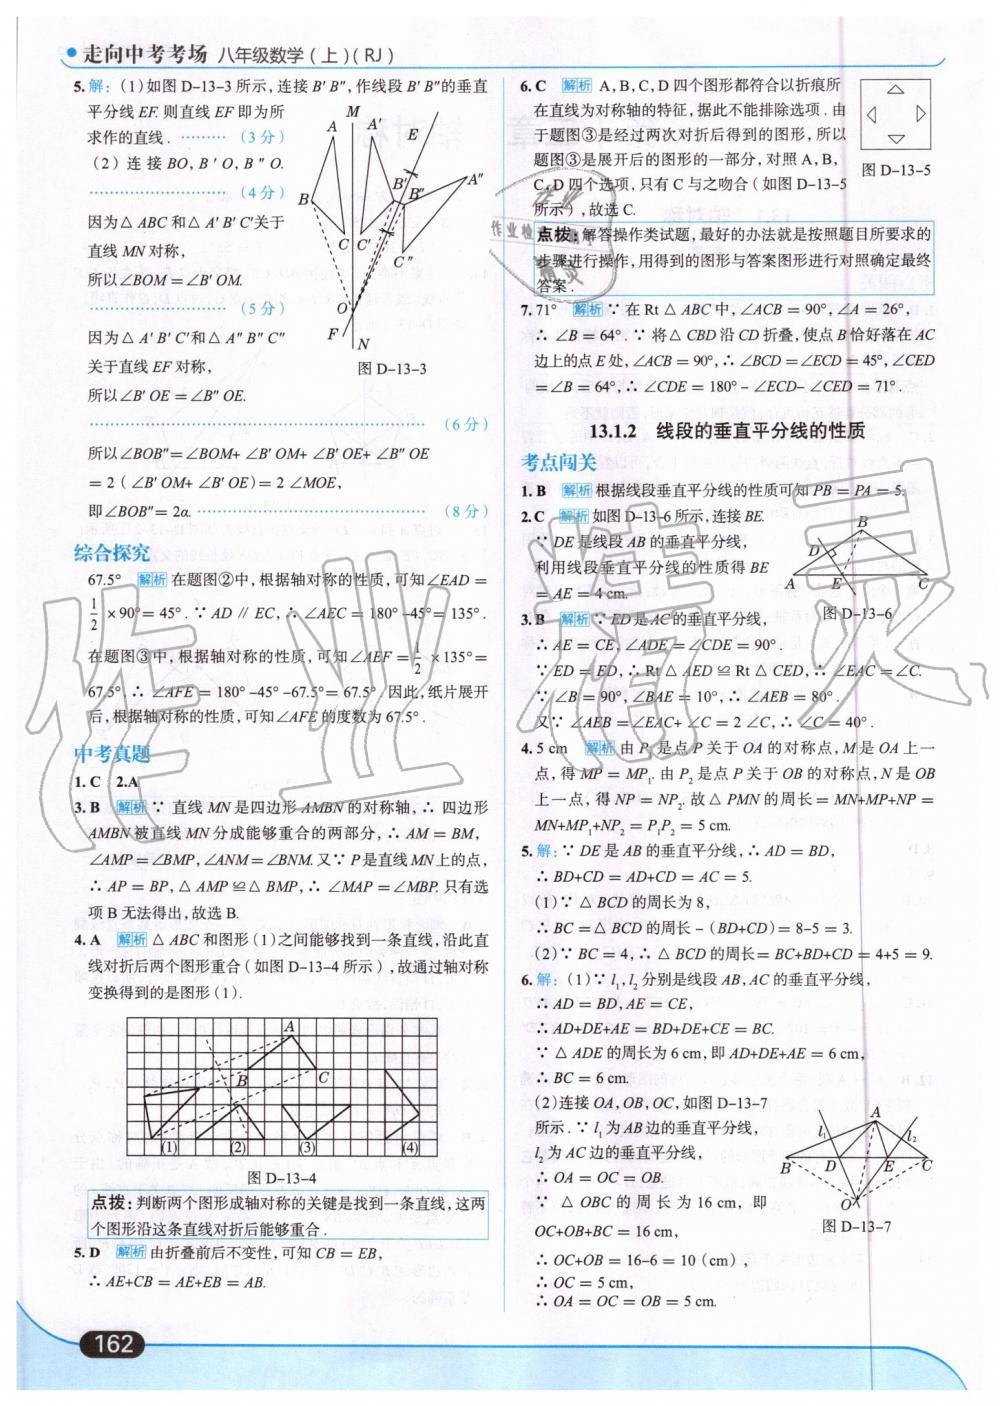 走向中考考场 八年级数学(上)(RJ)
5.解:(1)如图 D-13-3 所示,连接 B′B″,作线段 B′B″的垂直
平分线 EF. 则直线 EF 即为所
求作的直线. ……… (3分)
(2)连接 BO, B′O, B″O.
…………………… (4分)
因为△ABC 和△A′B′C′关于
直线 MN 对称,
所以∠BOM=∠B′OM.
…………………… (5分)
因为△A′B′C′和△A″B″C″
关于直线 EF 对称,
所以∠B′OE=∠B″OE.
…………………………………………… (6分)
所以∠BOB″=∠BOM+∠B′OM+∠B′OE+∠B″OE
=2(∠B′OM+∠B′OE)=2∠MOE,
即∠BOB″=2α. ………………………………… (8分)
M
A
A′
E
B′
A″
B
B″
C
C′
C″
O
F
N
图 D-13-3
综合探究
67.5° 解析 在题图②中,根据轴对称的性质,可知∠EAD=
1/2×90°=45°. ∵AD∥EC, ∴∠AEC=180°-45°=135°.
在题图③中,根据轴对称的性质,可知∠AEF=1/2×135°=
67.5°, ∴∠AFE=180°-45°-67.5°=67.5°. 因此,纸片展开
后,根据轴对称的性质,可知∠AFE 的度数为 67.5°.
中考真题
1.C 2.A
3.B 解析 ∵ 直线 MN 是四边形 AMBN 的对称轴, ∴ 四边形
AMBN 被直线 MN 分成能够重合的两部分, ∴ AM=BM,
∠AMP=∠BMP, ∠ANM=∠BNM. 又∵ P 是直线 MN 上的点,
∴ AP=BP, △AMP≌△BMP, ∴ ∠MAP=∠MBP. 只有选
项 B 无法得出,故选 B.
4.A 解析 △ABC 和图形(1)之间能够找到一条直线,沿此直
线对折后两个图形重合(如图 D-13-4 所示),故通过轴对称
变换得到的是图形(1).
A
B
C
(1)
(2)
(3)
(4)
图 D-13-4
点拨:判断两个图形成轴对称的关键是找到一条直线,这两
个图形沿这条直线对折后能够重合.
5.D 解析 由折叠前后不变性,可知 CB=EB,
∴ AE+CB=AE+EB=AB.
162
6.C 解析 A,B,C,D 四个图形都符合以折痕所
在直线为对称轴的特征,据此不能排除选项. 由
于题图③是经过两次对折后得到的图形,所以
题图③是展开后的图形的一部分,对照 A,B,
C,D 四个选项,只有 C 与之吻合(如图 D-13-5
所示),故选 C.
图 D-13-5
点拨:解答操作类试题,最好的办法就是按照题目所要求的
步骤进行操作,用得到的图形与答案图形进行对照确定最终
答案.
7.71° 解析 ∵ 在 Rt△ABC 中, ∠ACB=90°, ∠A=26°,
∴ ∠B=64°. ∵ 将△CBD 沿 CD 折叠,使点 B 恰好落在 AC
边上的点 E 处, ∠ACB=90°, ∴ ∠BCD=∠ECD=45°, ∠CED
=∠B=64°, ∴ ∠CDE=180°-∠ECD-∠CED=71°.
13.1.2 线段的垂直平分线的性质
考点闯关
1.B 解析 根据线段垂直平分线的性质可知 PB=PA=5.
2.C 解析 如图 D-13-6 所示,连接 BE.
∵ DE 是线段 AB 的垂直平分线,
利用线段垂直平分线的性质得 BE
=AE=4 cm.
B
D
A
E
C
图 D-13-6
3.B 解析 ∵ ED 是 AC 的垂直平分线,
∴ AE=CE, ∠ADE=∠CDE=90°.
∵ ED=ED, ∴ Rt△AED≌Rt△CED, ∴ ∠EAC=∠C.
∵ ∠B=90°, ∠BAE=10°, ∴ ∠AEB=80°.
又∵ ∠AEB=∠EAC+∠C=2∠C, ∴ ∠C=40°.
4.5 cm 解析 由 P₁ 是点 P 关于 OA 的对称点, M 是 OA 上一
点,得 MP=MP₁. 由 P₂ 是点 P 关于 OB 的对称点, N 是 OB
上一点,得 NP=NP₂. 故△PMN 的周长=MN+MP+NP=
MN+MP₁+NP₂=P₁P₂=5 cm.
5.解: ∵ DE 是 AB 的垂直平分线, ∴ AD=BD,
∴ BD+CD=AD+CD=AC=5.
(1)∵ △BCD 的周长为 8,
∴ BC=△BCD 的周长-(BD+CD)=8-5=3.
(2)∵ BC=4, ∴ △BCD 的周长=BC+BD+CD=4+5=9.
6.解:(1)∵ l₁, l₂ 分别是线段 AB, AC 的垂直平分线,
∴ AD=BD, AE=CE,
∴ AD+DE+AE=BD+DE+CE=BC.
∵ △ADE 的周长为 6 cm,即 AD+DE+AE=6 cm,
∴ BC=6 cm.
(2)连接 OA, OB, OC,如图 D-13-7
所示. ∵ l₁ 为 AB 边的垂直平分线,
l₂ 为 AC 边的垂直平分线,
∴ OA=OC=OB.
∵ △OBC 的周长为 16 cm,即
OC+OB+BC=16 cm,
∴ OC+OB=16-6=10(cm),
∴ OC=5 cm,
∴ OA=OC=OB=5 cm.
A
l₁
l₂
B
D
E
C
O
图 D-13-7
作业精灵